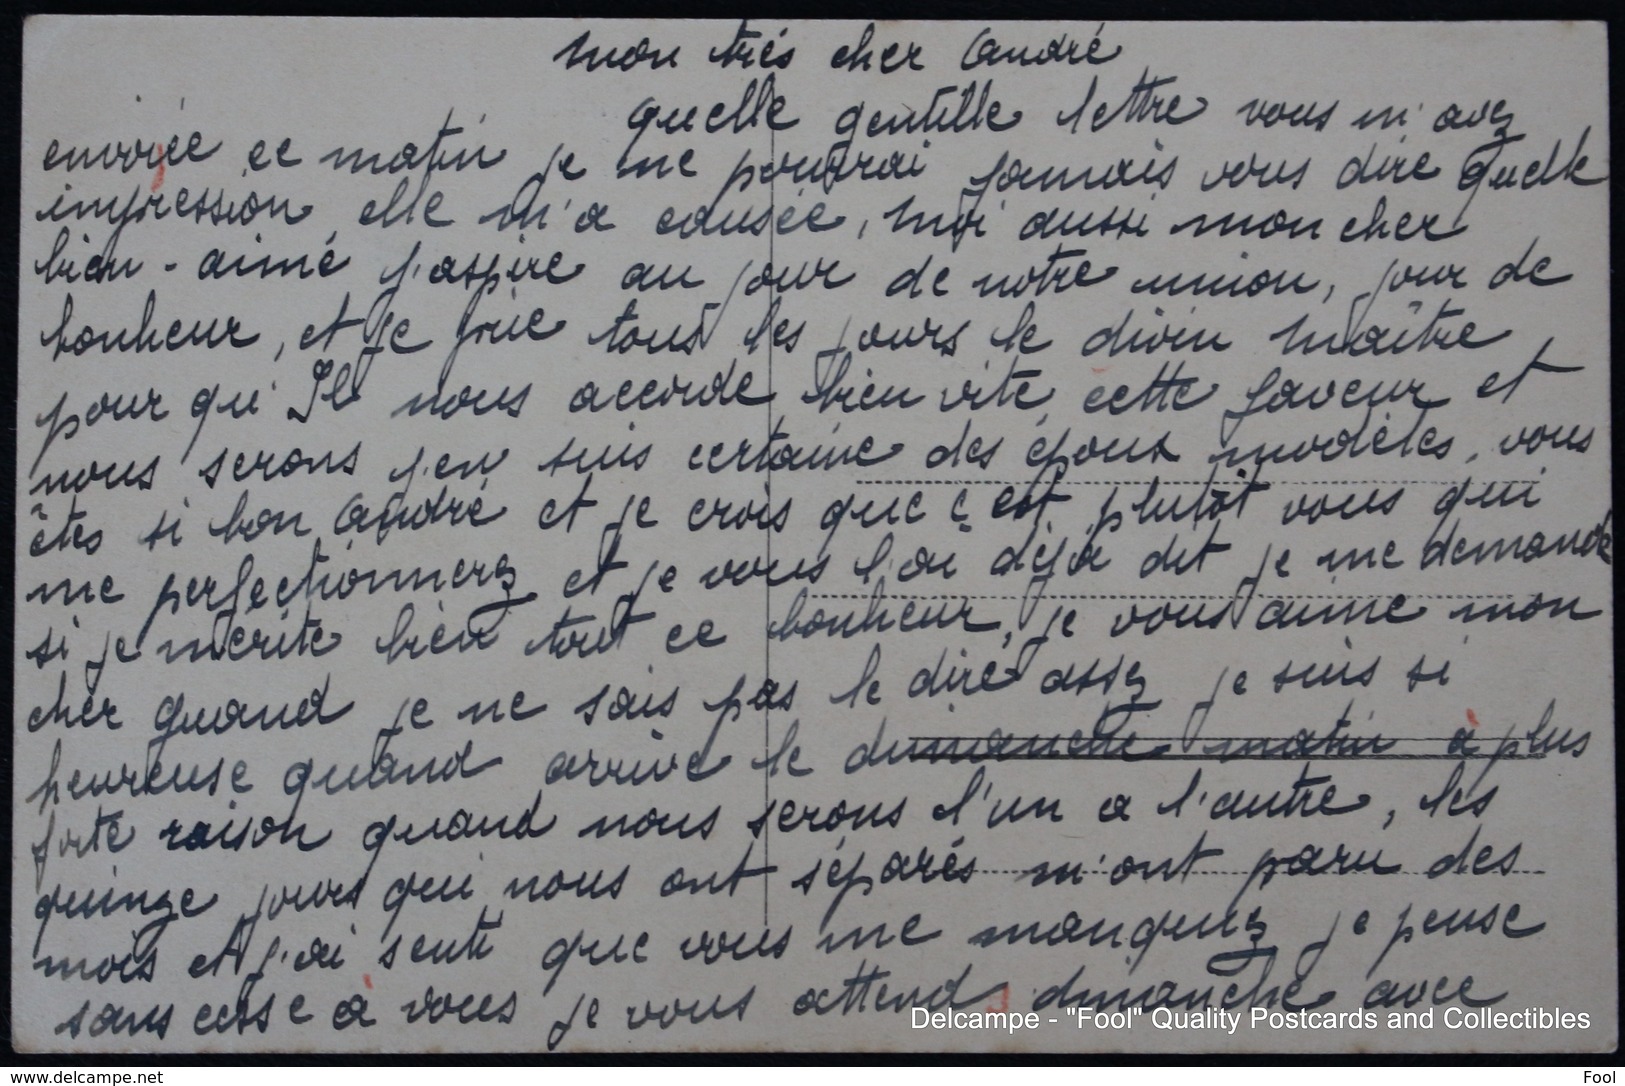 mon très cher André
quelle gentille lettre vous m'avez
envoiée ce matin je ne pourrai jamais vous dire quelle
impression elle m'a causée, moi aussi mon cher
bien-aimé j'aspire au jour de notre union, jour de
bonheur, et je prie tous les jours le divin Maître
pour qu'Il nous accorde bien vite cette faveur et
nous serons j'en suis certaine des époux modèles, vous
êtes si bon André et je crois que c'est plutôt vous qui
me perfectionnerez et je vous l'ai déjà dit je me demande
si je mérite bien tout ce bonheur, je vous aime mon
cher quand je ne sais pas le dire assez je suis si
heureuse quand arrive le dimanche matin à plus
forte raison quand nous serons l'un a l'autre, les
quinze jours qui nous ont séparés m'ont paru des
mois et j'ai senti que vous me manquez je pense
sans cesse à vous je vous attend dimanche avec
Delcampe - "Fool" Quality Postcards and Collectibles
www.delcampe.net
Fool